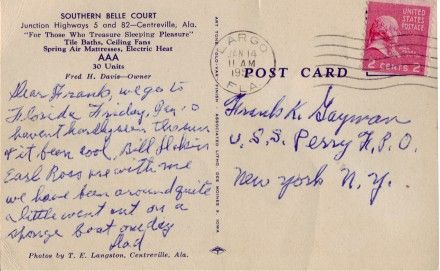 SOUTHERN BELLE COURT
Junction Highways 5 and 82—Centreville, Ala.
"For Those Who Treasure Sleeping Pleasure"
Tile Baths, Ceiling Fans
Spring Air Mattresses, Electric Heat
AAA
30 Units
Fred H. Davis—Owner
Dear Frank, we go to
Florida Friday,
havent hardly seen the sun
& it been cool, Bill
Earl Ross are with me
we have been around quite
a little went out on a
sponge boat one day
Dad
Photos by T. E. Langston, Centreville, Ala.
LARGO
JAN 14
11 AM
FLA.
UNITED STATES
POSTAGE
2 CENTS 2
POST CARD
Frank K. Gayman
U.S.S. Perry F.P.O.
New York N.Y.